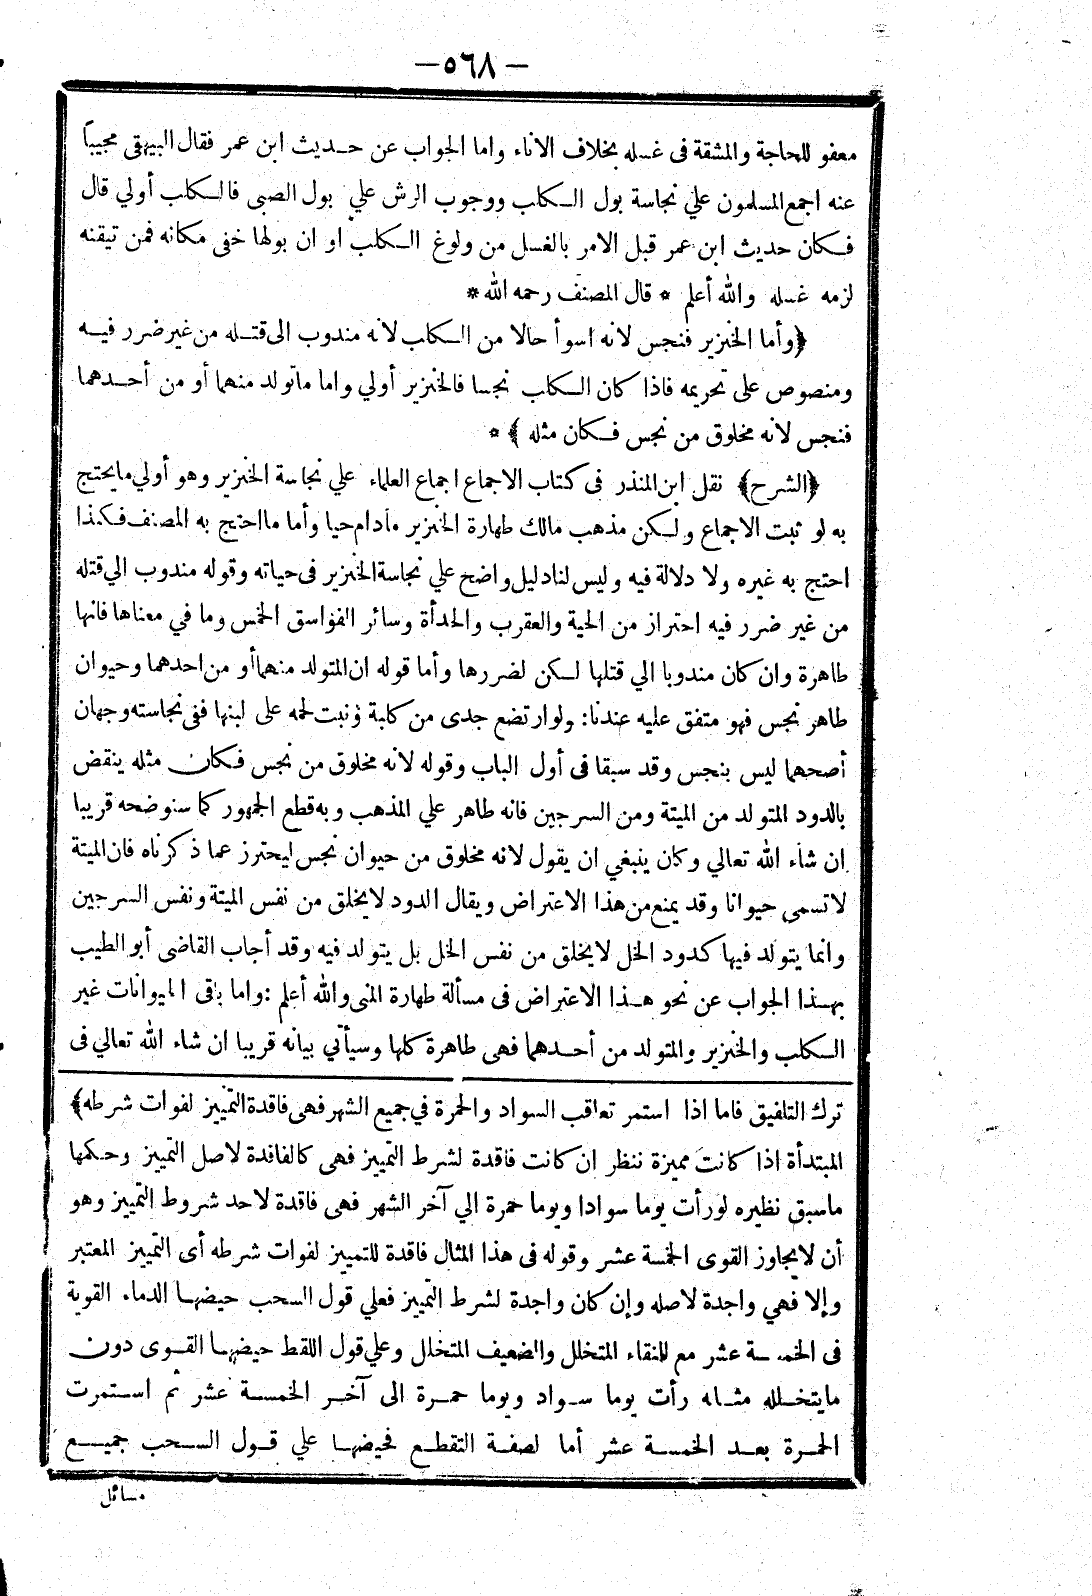 —٥٦٨—
معفو للحاجة والمشقة فى غسله بخلاف الاناء واما الجواب عن حديث ابن عمر فقال البيهقى مجيبا
عنه اجمع المسلمون علي نجاسة بول الكلب ووجوب الرش علي بول الصبى فالكلب أولي قال
فكان حديث ابن عمر قبل الامر بالغسل من ولوغ الكلب او ان بولها خفى مكانه فمن تيقنه
لزمه غسله والله أعلم * قال المصنف رحمه الله *
﴿وأما الخنزير فنجس لانه اسوأ حالا من الكلب لانه مندوب الى قتله من غير ضرر فيه
ومنصوص على تحريمه فاذا كان الكلب نجسا فالخنزير أولي واما ماتولد منهما أو من أحدهما
فنجس لانه مخلوق من نجس فكان مثله ﴾ *
﴿الشرح﴾ نقل ابن المنذر فى كتاب الاجماع اجماع العلماء علي نجاسة الخنزير وهو أولي مايحتج
به لو ثبت الاجماع ولكن مذهب مالك طهارة الخنزير مادام حيا وأما مااحتج به المصنف فكذا
احتج به غيره ولا دلالة فيه وليس لنا دليل واضح علي نجاسة الخنزير فى حياته وقوله مندوب الي قتله
من غير ضرر فيه احتراز من الحية والعقرب والحدأة وسائر الفواسق الخمس وما في معناها فانها
طاهرة وان كان مندوبا الي قتلها لكن لضررها وأما قوله ان المتولد منهما أو من احدهما وحيوان
طاهر نجس فهو متفق عليه عندنا: ولو ارتضع جدى من كلبة ونبت لحمه على لبنها ففى نجاسته وجهان
أصحهما ليس بنجس وقد سبقا فى أول الباب وقوله لانه مخلوق من نجس فكان مثله ينقض
بالدود المتولد من الميتة ومن السرجين فانه طاهر علي المذهب وبه قطع الجمهور كما سنوضحه قريبا
ان شاء الله تعالي وكان ينبغي ان يقول لانه مخلوق من حيوان نجس ليحترز عما ذكرناه فان الميتة
لاتسمى حيوانا وقد يمنع من هذا الاعتراض ويقال الدود لايخلق من نفس الميتة ونفس السرجين
وانما يتولد فيها كدود الخل لايخلق من نفس الخل بل يتولد فيه وقد أجاب القاضى أبو الطيب
بهذا الجواب عن نحو هذا الاعتراض فى مسألة طهارة المنى والله أعلم : واما باقى الحيوانات غير
الكلب والخنزير والمتولد من أحدهما فهى طاهرة كلها وسيأتي بيانه قريبا ان شاء الله تعالي فى
ترك التلفيق فاما اذا استمر تعاقب السواد والحمرة في جميع الشهر فهى فاقدة التمييز لفوات شرطه﴾
المبتدأة اذا كانت مميزة ننظر ان كانت فاقدة لشرط التمييز فهى كالفاقدة لاصل التمييز وحكمها
ماسبق نظيره لو رأت يوما سوادا ويوما حمرة الي آخر الشهر فهى فاقدة لاحد شروط التمييز وهو
أن لايجاوز القوى الخمسة عشر وقوله فى هذا المثال فاقدة للتمييز لفوات شرطه أى التمييز المعتبر
وإلا فهي واجدة لاصله وإن كان واجدة لشرط التمييز فعلي قول السحب حيضها الدماء القوية
فى الخمسة عشر مع النقاء المتخلل والضعيف المتخلل وعلي قول اللقط حيضها القوى دون
مايتخلله مثاله رأت يوما سواد ويوما حمرة الى آخر الخمسة عشر ثم استمرت
الحمرة بعد الخمسة عشر أما لصفة التقطع فحيضها علي قول السحب جميع
مسائل